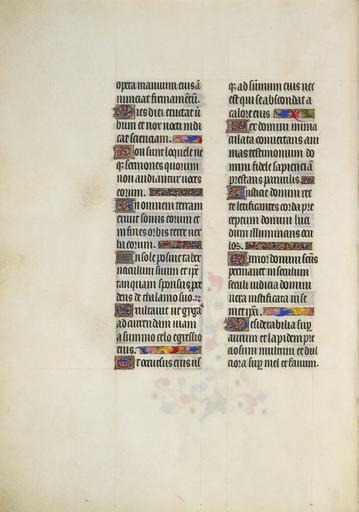 opera manuum eius a
nunciat firmamentū.
Dies diei eructat u
bum et nox nocti indi
cat scienciam.
Non sunt loquele ne
qȝ sermones quorum
non audiantur uoces
eorum.
In omnem terram
exiuit sonus eorum et
in fines orbis terre uer
ba eorum.
In sole posuit taber
naculum suum et ip̄e
tanquam sponsus p̄ce
dens de thalamo suo.
Exultauit ut gygas
ad currendam uiam
a summo celo egressio
eius.
Et occursus eius usȝ
qȝ ad sūmum eius nec
est qui se abscondat a
calore eius
Lex domini inma
culata conuertens ani
mas testimonium do
mini fidele sapienciā
prestans paruulis.
Iusticie domini rec
te letificantes corda pre
ceptum domini luci
dum illuminans ocu
los.
Timor domini sc̄us
permanet in seculum
seculi iudicia domini
uera iustificata in se
metip̄a.
Desiderabilia sup̄
aurum et lapidem p̄re
ciosum multum et dul
ciora sup̄ mel et fauum.